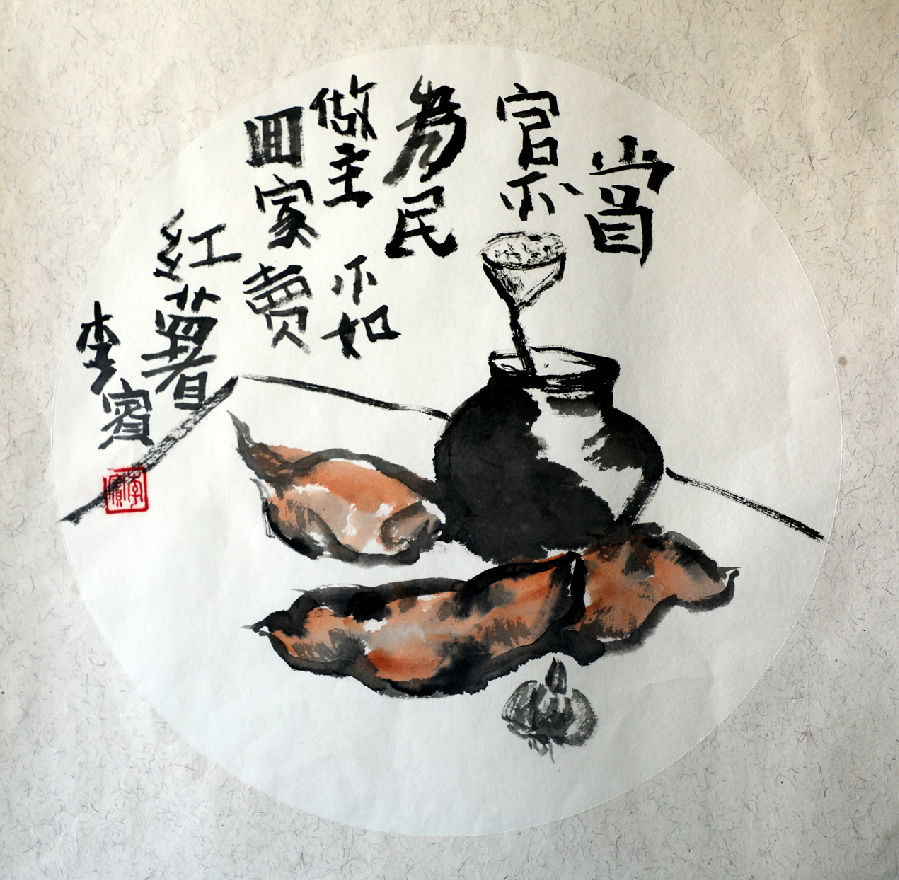 當
官不
為民
做主不如
回家賣
紅薯
李賓
李賓